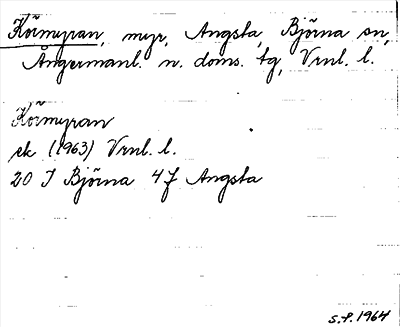 Körmyran, myr, Angsta, Björna sn,
Ångermanl. n. doms. tg, Vrnl. l.
Körmyran
ek (1963) Vrnl. l.
20 I Björna 4 f Angsta
S.P. 1964